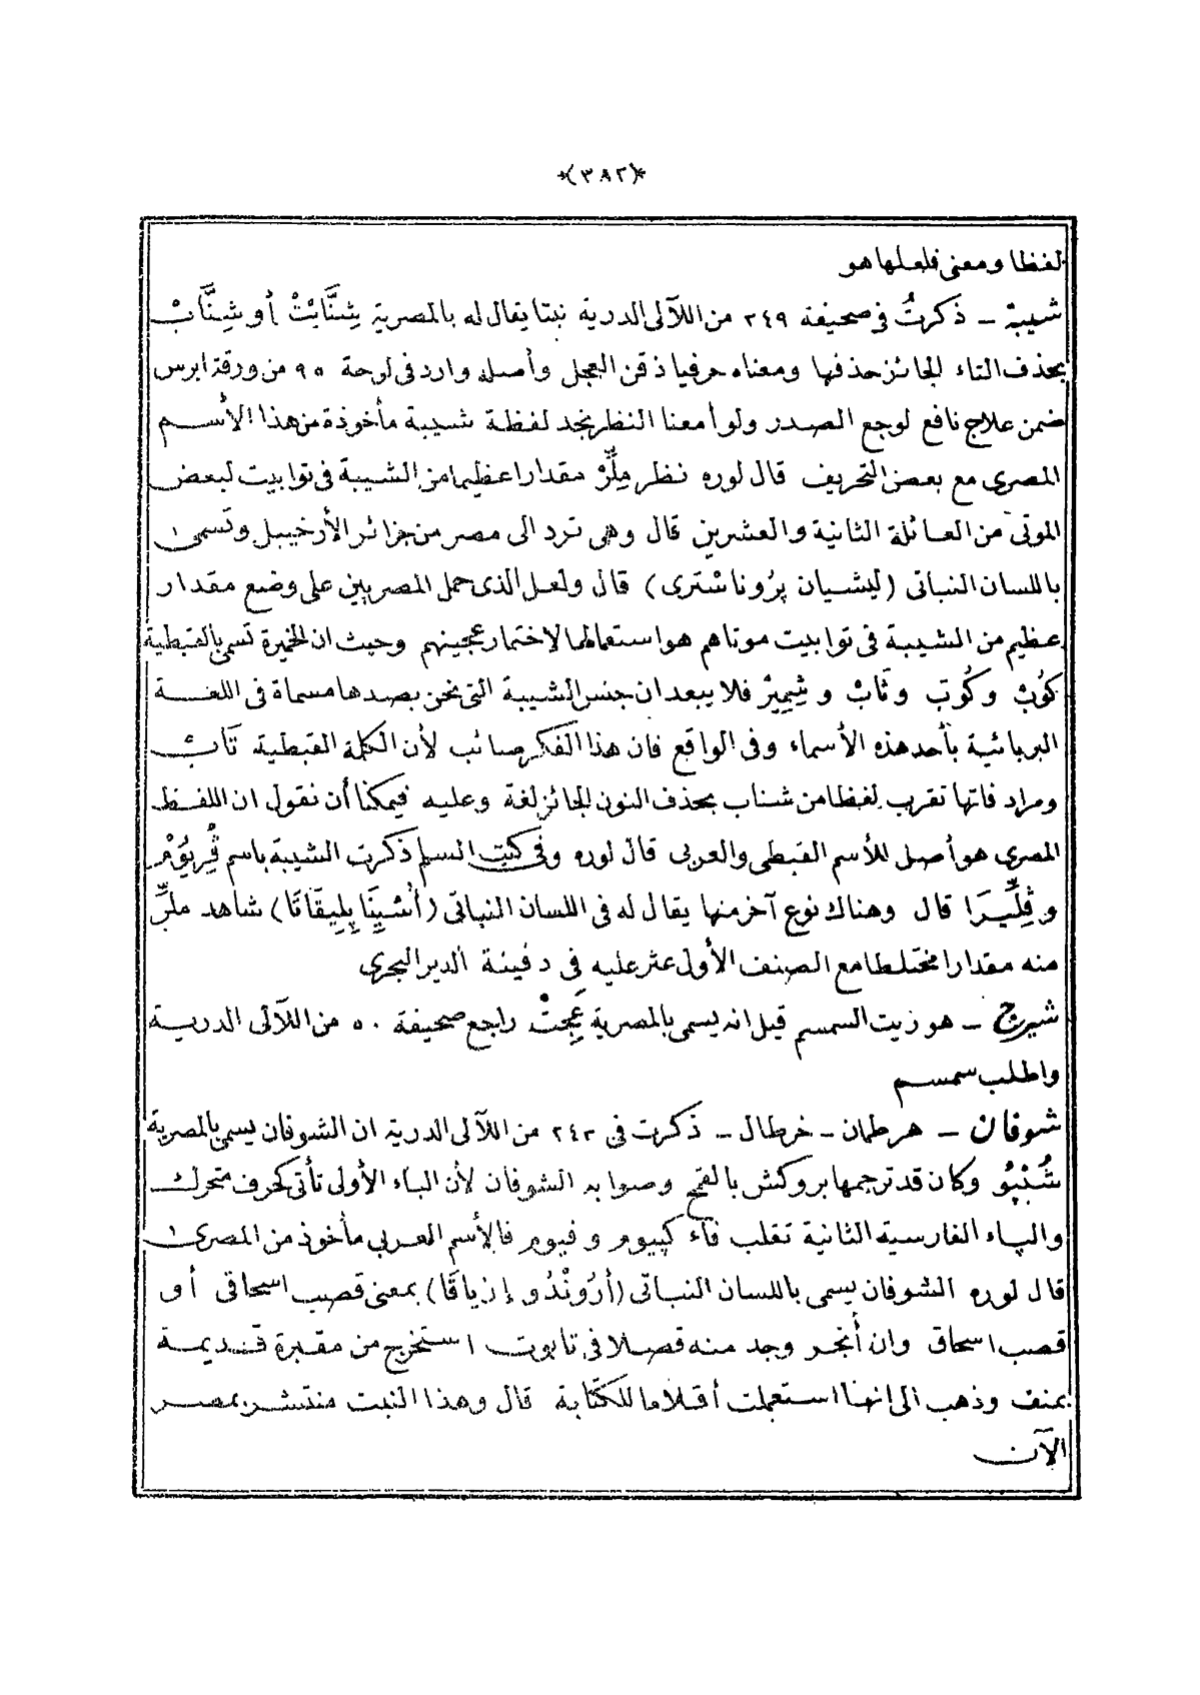 *(٣٨٢)*
لفظا ومعنى فلعلها هو
شيبة – ذكرتُ فى صحيفة ٢٤٩ من اللآلى الدرية نبتا يقال له بالمصرية شِنَّابِتْ أو شِنَّابْ
بحذف التاء الجائز حذفها ومعناه حرفيا ذقن العجل وأصله وارد فى لوحة ٩٥ من ورقة ابرس
ضمن علاج نافع لوجع الصدر ولو أمعنا النظر نجد لفظة شيبة مأخوذة من هذا الأسم
المصرى مع بعض التحريف قال لوره نظر مِلِّرْ مقدارا عظيما من الشيبة فى توابيت لبعض
الموتى من العائلة الثانية والعشرين قال وهى ترد الى مصر من جزائر الأرخيبل وتسمى
باللسان النباتى (ليشيان پرُوناسْترى) قال ولعل الذى حمل المصريين على وضع مقدار
عظيم من الشيبة فى توابيت موتاهم هو استعمالها لاختمار عجينهم وحيث ان الخميرة تسمى بالقبطية
كوُبْ وكُوبَ وثَابْ و شِمِيرْ فلا يبعد ان جنس الشيبة التى نحن بصددها مسماة فى اللغة
البربائية بأحد هذه الأسماء وفى الواقع فان هذا الفكر صائب لأن الكلمة القبطية ثَاب
ومراد فاتها تقرب لفظا من شناب بحذف النون الجائز لغة وعليه فيمكنا أن نقول ان اللفظ
المصرى هو أصل للأسم القبطى والعربى قال لوره وفى كتب السلم ذكرت الشيبة باسم ڤِريوُمْ
و ڤِلِّيرَا قال وهناك نوع آخر منها يقال له فى اللسان النباتى (أُسْنِيَا پِليقَاتَا) شاهد ملرِّ
منه مقدارا مختلطا مع الصنف الأول عثر عليه فى دفينة الدير البحرى
شيرج – هو زيت السمسم قيل انه يسمى بالمصرية عَجِتْ راجع صحيفة ٥٠ من اللآلى الدرية
واطلب سمسم
شوفان – هرطمان – خرطال – ذكرت فى ٢٤٣ من اللآلى الدرية ان الشوفان يسمى بالمصرية
شُنْپوُ وكان قد ترجمها بروكش بالقمح وصوابه الشوفان لأن الباء الأولى تأتى كحرف متحرك
والپاء الفارسية الثانية تقلب فاء كپيوم وفيوم فالإسم العربى مأخوذ من المصرى
قال لوره الشوفان يسمى باللسان النباتى (أرُونْدُو إزياقَا) بمعنى قصب اسحاقى أو
قصب اسحاق وان أنجر وجد منه قصلا فى تابوت استخرج من مقبرة قديمة
بمنف وذهب الى انها استعملت أقلاما للكتابة قال وهذا النبت منتشر بمصر
الآن